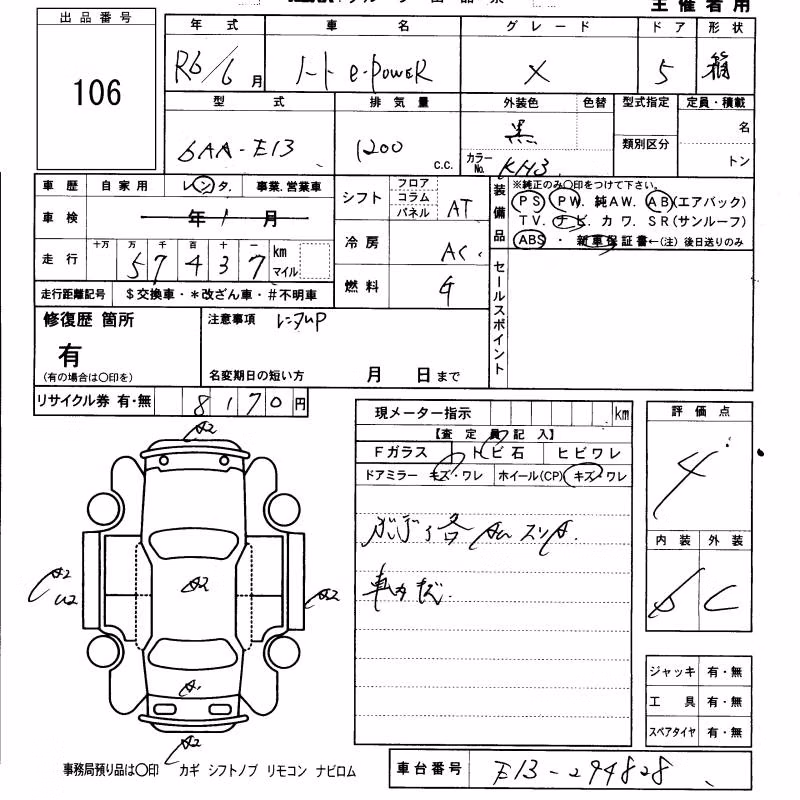 主催者用
出品番号
106
年式 車名 グレード ドア 形状
R6/6月 ノート e-POWER X 5 箱
型式 排気量 外装色 色替 型式指定 定員・積載
6AA-E13 1200 c.c. 黒 カラーNo. KH3 類別区分 名 トン
車歴 自家用 レンタ. 事業.営業車
車検 年 月
走行 十万 万 千 百 十 一
57437 km マイル
走行距離記号 $交換車・*改ざん車・#不明車
シフト フロア コラム パネル AT
冷房 AC
燃料 G
装備品 ※純正のみ〇印をつけて下さい。
PS PW 純AW. AB(エアバック)
TV. ナビ. カワ. SR(サンルーフ)
ABS ・ 新車保証書←(注)後日送りのみ
セールスポイント
修復歴 箇所
有
(有の場合は〇印を)
注意事項 レンタUP
名変期日の短い方 月 日まで
リサイクル券 有・無 8170円
現メーター指示 km
【査定員記入】
Fガラス トビ石 ヒビワレ
ドアミラー キズ・ワレ ホイール(CP) キズ・ワレ
評価点
4
内装 外装
b C
A2
A2
U2
A2
A2
A2
ジャッキ 有・無
工具 有・無
スペアタイヤ 有・無
事務局預り品は〇印 カギ シフトノブ リモコン ナビロム
車台番号 E13-294828